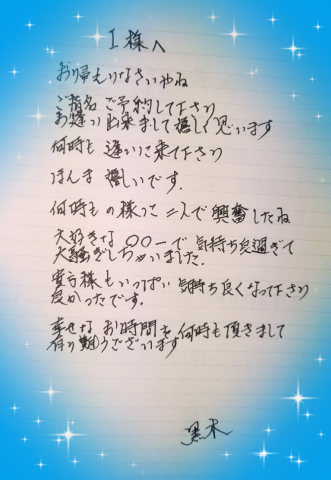 I様へ
お帰えりなさいやね
ご指名ご予約して下さり
お逢い出来まして嬉しく思います
何時も逢いに来て下さり
ほんま嬉しいです。
何時もの様に二人で興奮したね
大好きな〇〇一で気持ち良過ぎて
大騒ぎしちゃいました。
貴方様もいっぱい気持ち良くなって下さり
良かったです。
幸せなお時間を何時も頂きまして
有り難うございます
黒木